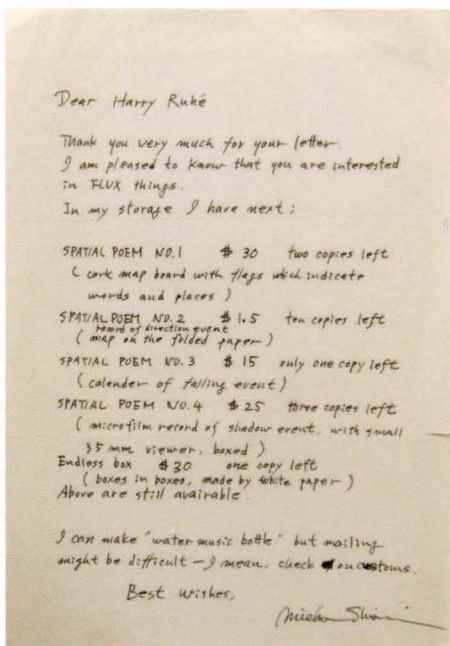 Dear Harry Ruhé
Thank you very much for your letter.
I am pleased to know that you are interested
in FLUX things.
In my storage I have next;
SPATIAL POEM NO.1 $ 30 two copies left
( cork map board with flags which indicate
words and places )
SPATIAL POEM NO.2 $ 1.5 ten copies left
record of direction event
( map on the folded paper )
SPATIAL POEM NO.3 $ 15 only one copy left
( calender of falling event )
SPATIAL POEM NO.4 $ 25 three copies left
( microfilm record of shadow event, with small
35 mm viewer, boxed )
Endless box $30 one copy left
( boxes in boxes, made by white paper )
Above are still avairable.
I can make "water music bottle" but mailing
might be difficult – I mean, check on customs.
Best wishes,
Mieko Shiomi